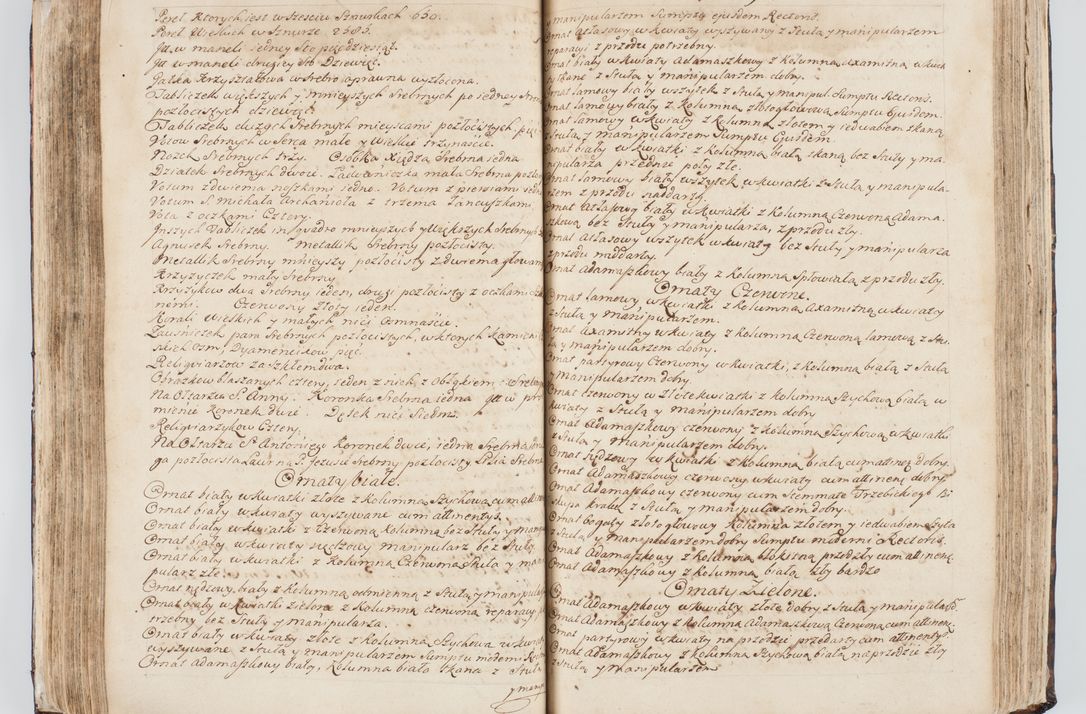 Pereł Ktorych jest w sześciu Sznurkach 630.
Pereł Wielkich w Sznurze 2585.
w maneli jedney sto pięćdziesiąt.
w maneli drugiey sto Dziewięć.
Gałka Krzyształowa w srebro oprawna wyzłocona.
Tabliczek większych y mnieyszych Srebrnych po jedney
pozłocistych dziewięć.
Tabliczek dużych Srebrnych mieyscami pozłocistych
Votow Srebrnych w Serca małe y Wielkie trzynaście.
Nozek Srebrnych trzy. Osobka Xiędza Srebrna jedna
Działek Srebrnych dwoie. mała Srebrna
Votum z dwiema noszkami jedno. Votum z piersiami
Votum S. Michała Archanioła z trzema Łancuszkami.
Vota z oczkami Cztery.
Inszych Tabliczek in quadro mnieyszych y większych Srebrnych
Agnusek Srebrny. Metallik Srebrny pozłocisty.
Metallik Srebrny mnieyszy pozłocisty z dwiema głowami
Krzyzyczek mały Srebrny
Krzyżykow dwa Srebrny jeden, drugi pozłocisty z oczkami
nemi. Czerwony Złoty jeden.
Korali Wielkich y małych nici Osmnaście.
Zausniczek para Srebrnych pozłocistych, w ktorych Kamieni
Osm, Dyamencikow pięć.
Religiarzow za szklem dwa.
Obrazkow blaszanych cztery, jeden z nich z Obłąkiem
Na Ołtarzu S. Anny. Koronka Srebrna jedna
mienie Koronek dwie.
Religiarzykow Cztery.
Na Ołtarzu S. Antoniego Koronek dwie, jedna Srebrna
ga pozłocista S. Jezusie Srebrny pozłocisty
Ornaty białe.
Ornat biały w kwiatki złote z Kolumną Szychową cum attinen
Ornat biały w kwiaty wyszywane cum attinentys.
Ornat biały w kwiatki z Czerwoną Kolumną bez Stuły y
Ornat biały w kwiaty manipularz bez Stuły
Ornat biały w kwiatki z Kolumną Czerwoną Stuła y
pularz złe.
Ornat biały z kolumną odmienną z Stułą y manipul
Ornat biały w kwiatki zielone z kolumną czerwoną reparacyi
trzebny bez Stuły y manipularza.
Ornat biały w kwiaty złote z Kolumną Szychową w kwiaty
wyszywane z Stułą y manipularzem Sumptu moderni
Ornat Adamaszkowy biały, Kolumna biała tkana z Stułą
y mani

manipularzem Sumptu ejusdem Rectoris.
Ornat Atłasowy w kwiaty wyszywany z Stułą y manipularzem
reparacyi z przodu potrzebny.
Ornat biały w kwiaty Adamaszkowy z kolumną Axamitną w kwiaty
tkane z Stułą y manipularzem dobry.
Ornat lamowy biały wszytek z Stułą y manipul. Sumptu Rectoris.
Ornat lamowy biały z Kolumną złotogłowową Sumptu Ejusdem.
Ornat lamowy w kwiaty z Kolumną złotem y jedwabiem tkaną
z Stułą y manipularzem Sumptu Ejusdem.
Ornat biały w kwiatki z kolumną białą tkaną bez Stuły y ma
nipularza przednie poły złe.
Ornat lamowy biały wszytek w kwiatki z Stułą y manipula
rzem z przodu naddarty.
Ornat Atłasowy biały w kwiatki z kolumną Czerwoną Adama
szkową bez Stuły y manipularza, z przodu zły.
Ornat Atłasowy wszytek w kwiaty bez Stuły y manipularza
z przodu naddarty.
Ornat Adamaszkowy biały z kolumną Spłowiałą z przodu zły.
Ornaty Czerwone.
Ornat lamowy w kwiatki z Kolumną Axamitną w kwiaty
z Stułą y manipularzem.
Ornat Axamitny w kwiaty z kolumną Czerwoną lamową z Stu
łą y manipularzem dobry.
Ornat partyrowy Czerwony w kwiatki, z kolumną białą z Stułą
y manipularzem dobry
Ornat czerwony w złote kwiatki z kolumną Szychową białą w
kwiaty z Stułą y manipularzem dobry
Ornat Adamaszkowy czerwony z kolumną Szychową w kwiatki
z Stułą y manipularzem dobry.
Ornat w kwiatki z kolumną białą cum attinen. dobry.
Ornat Adamaszkowy czerwony w kwiaty cum attinen. dobry
Ornat Adamaszkowy czerwony cum Stemmate Trzebickiego Bi
skupa Krakow. z Stułą y manipularzem dobry.
Ornat bogaty złotogłowowy Kolumna złotem y jedwabiem szyta
z Stułą y manipularzem dobry Sumptu moderni Rectoris.
Ornat Adamaszkowy z Kolumną błękitną przod zły cum attinen.
Ornat Adamaszkowy z Kolumną białą zły bardzo
Ornaty Zielone.
Ornat Adamaszkowy w kwiaty złote dobry z Stułą y manipul.
Ornat Adamaszkowy z kolumną Adamaszkową Czerwoną cum attinen.
Ornat partyrowy w kwiaty na przodzie przedarty cum attinentys
Ornat Adamaszkowy z kolumną Szychową białą na przodzie zły
z Stułą y manipularzem